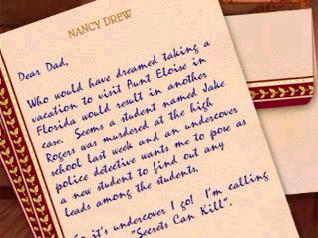 NANCY DREW
Dear Dad,
Who would have dreamed taking a
vacation to visit Aunt Eloise in
Florida would result in another
case. Seems a student named Jake
Rogers was murdered at the high
school last week and an undercover
police detective wants me to pose as
a new student to find out any
leads among the students.
it's undercover I go! I'm calling
"Secrets Can Kill".